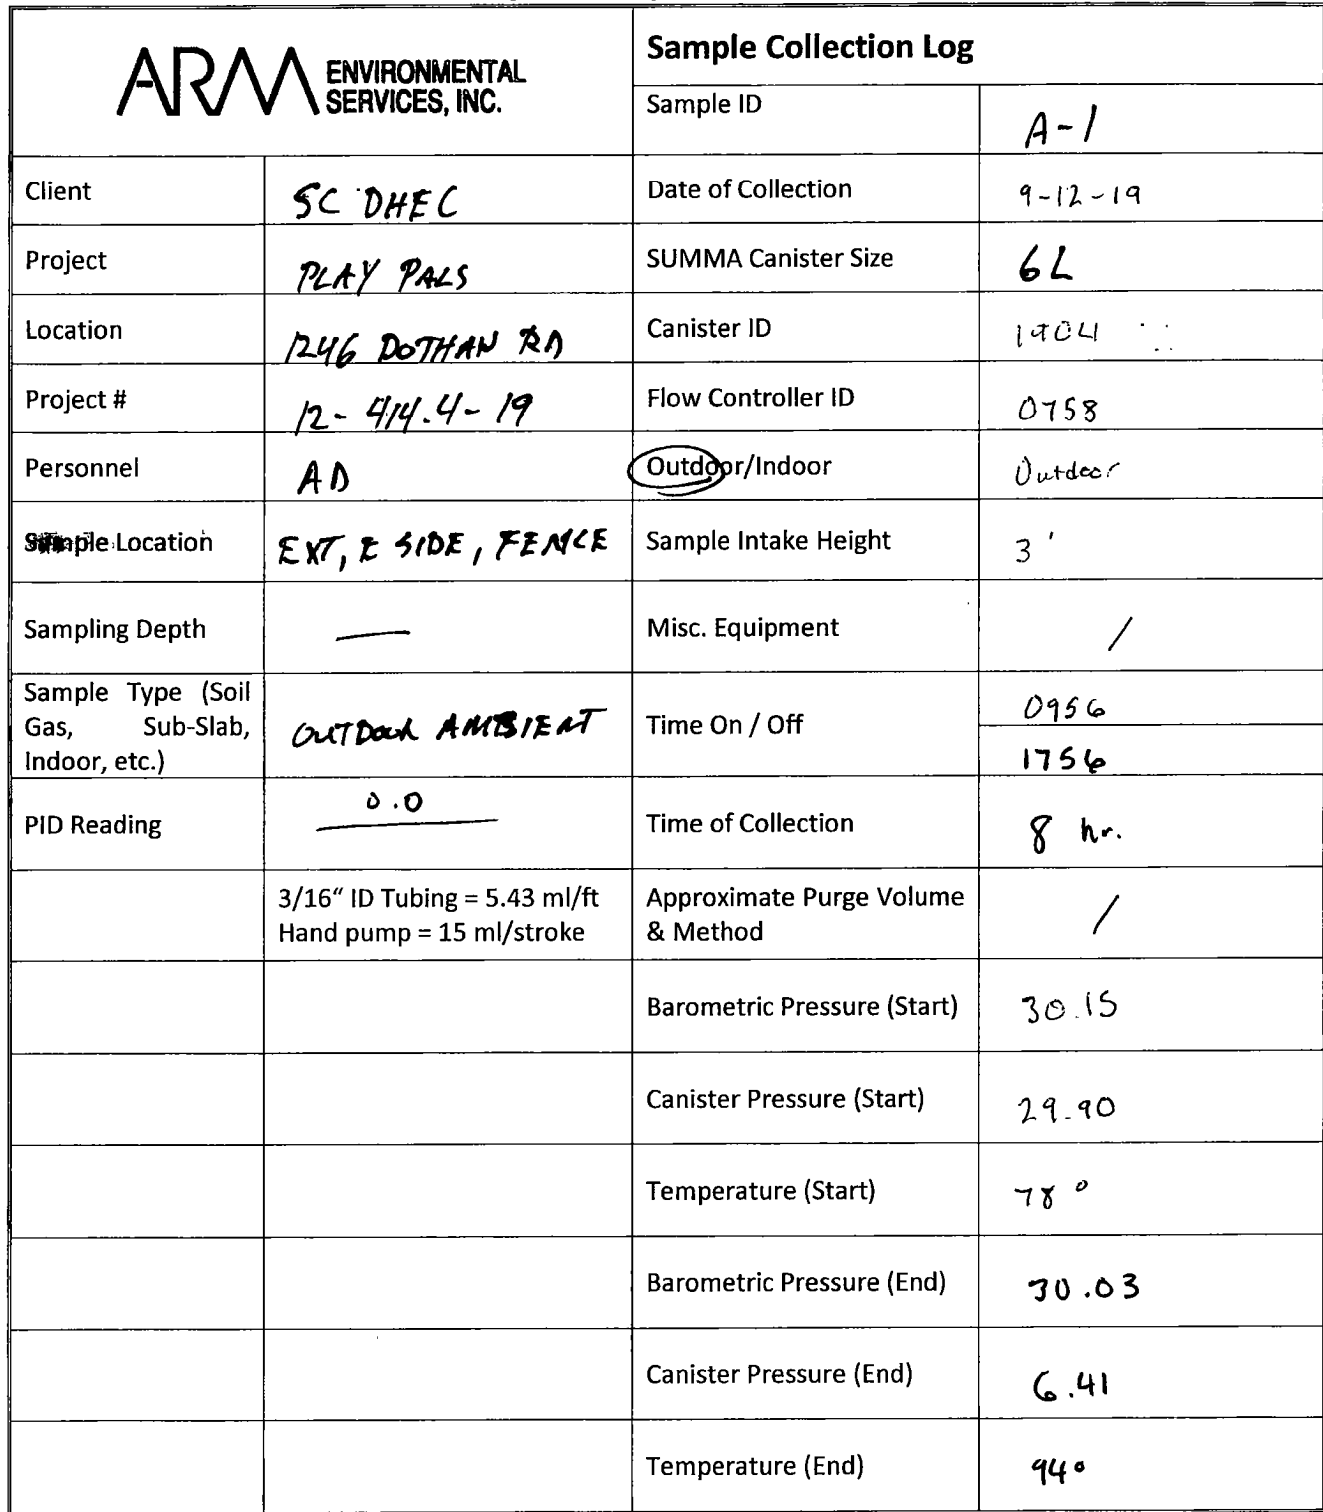 ARM ENVIRONMENTAL SERVICES, INC.
Sample Collection Log
Sample ID A-1
Client SC DHEC Date of Collection 9-12-19
Project PLAY PALS SUMMA Canister Size 6L
Location 1246 DOTHAN RD Canister ID 1904
Project # 12-414.4-19 Flow Controller ID 0758
Personnel AD Outdoor/Indoor Outdoor
Sample Location EXT, E SIDE, FENCE Sample Intake Height 3'
Sampling Depth — Misc. Equipment /
Sample Type (Soil
Gas, Sub-Slab,
Indoor, etc.)
OUTDOOR AMBIENT Time On / Off 0956
1756
PID Reading 0.0 Time of Collection 8 hr.
3/16" ID Tubing = 5.43 ml/ft
Hand pump = 15 ml/stroke
Approximate Purge Volume
& Method
/
Barometric Pressure (Start) 30.15
Canister Pressure (Start) 29.90
Temperature (Start) 78°
Barometric Pressure (End) 30.03
Canister Pressure (End) 6.41
Temperature (End) 94°